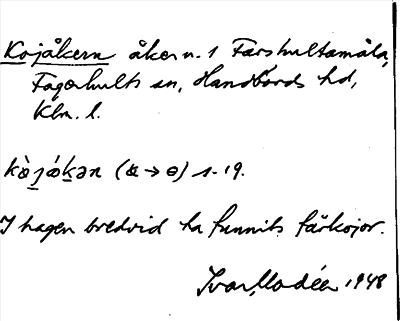 Kojåkern åker n. 1 Fårshultamåla,
Fagerhults sn, Handbörds hd,
Klm. l.
kæ̀jǻkən (æ → ɵ) s. 19.
I hagen bredvid ha funnits fårkojor.
Ivar Modéer 1948